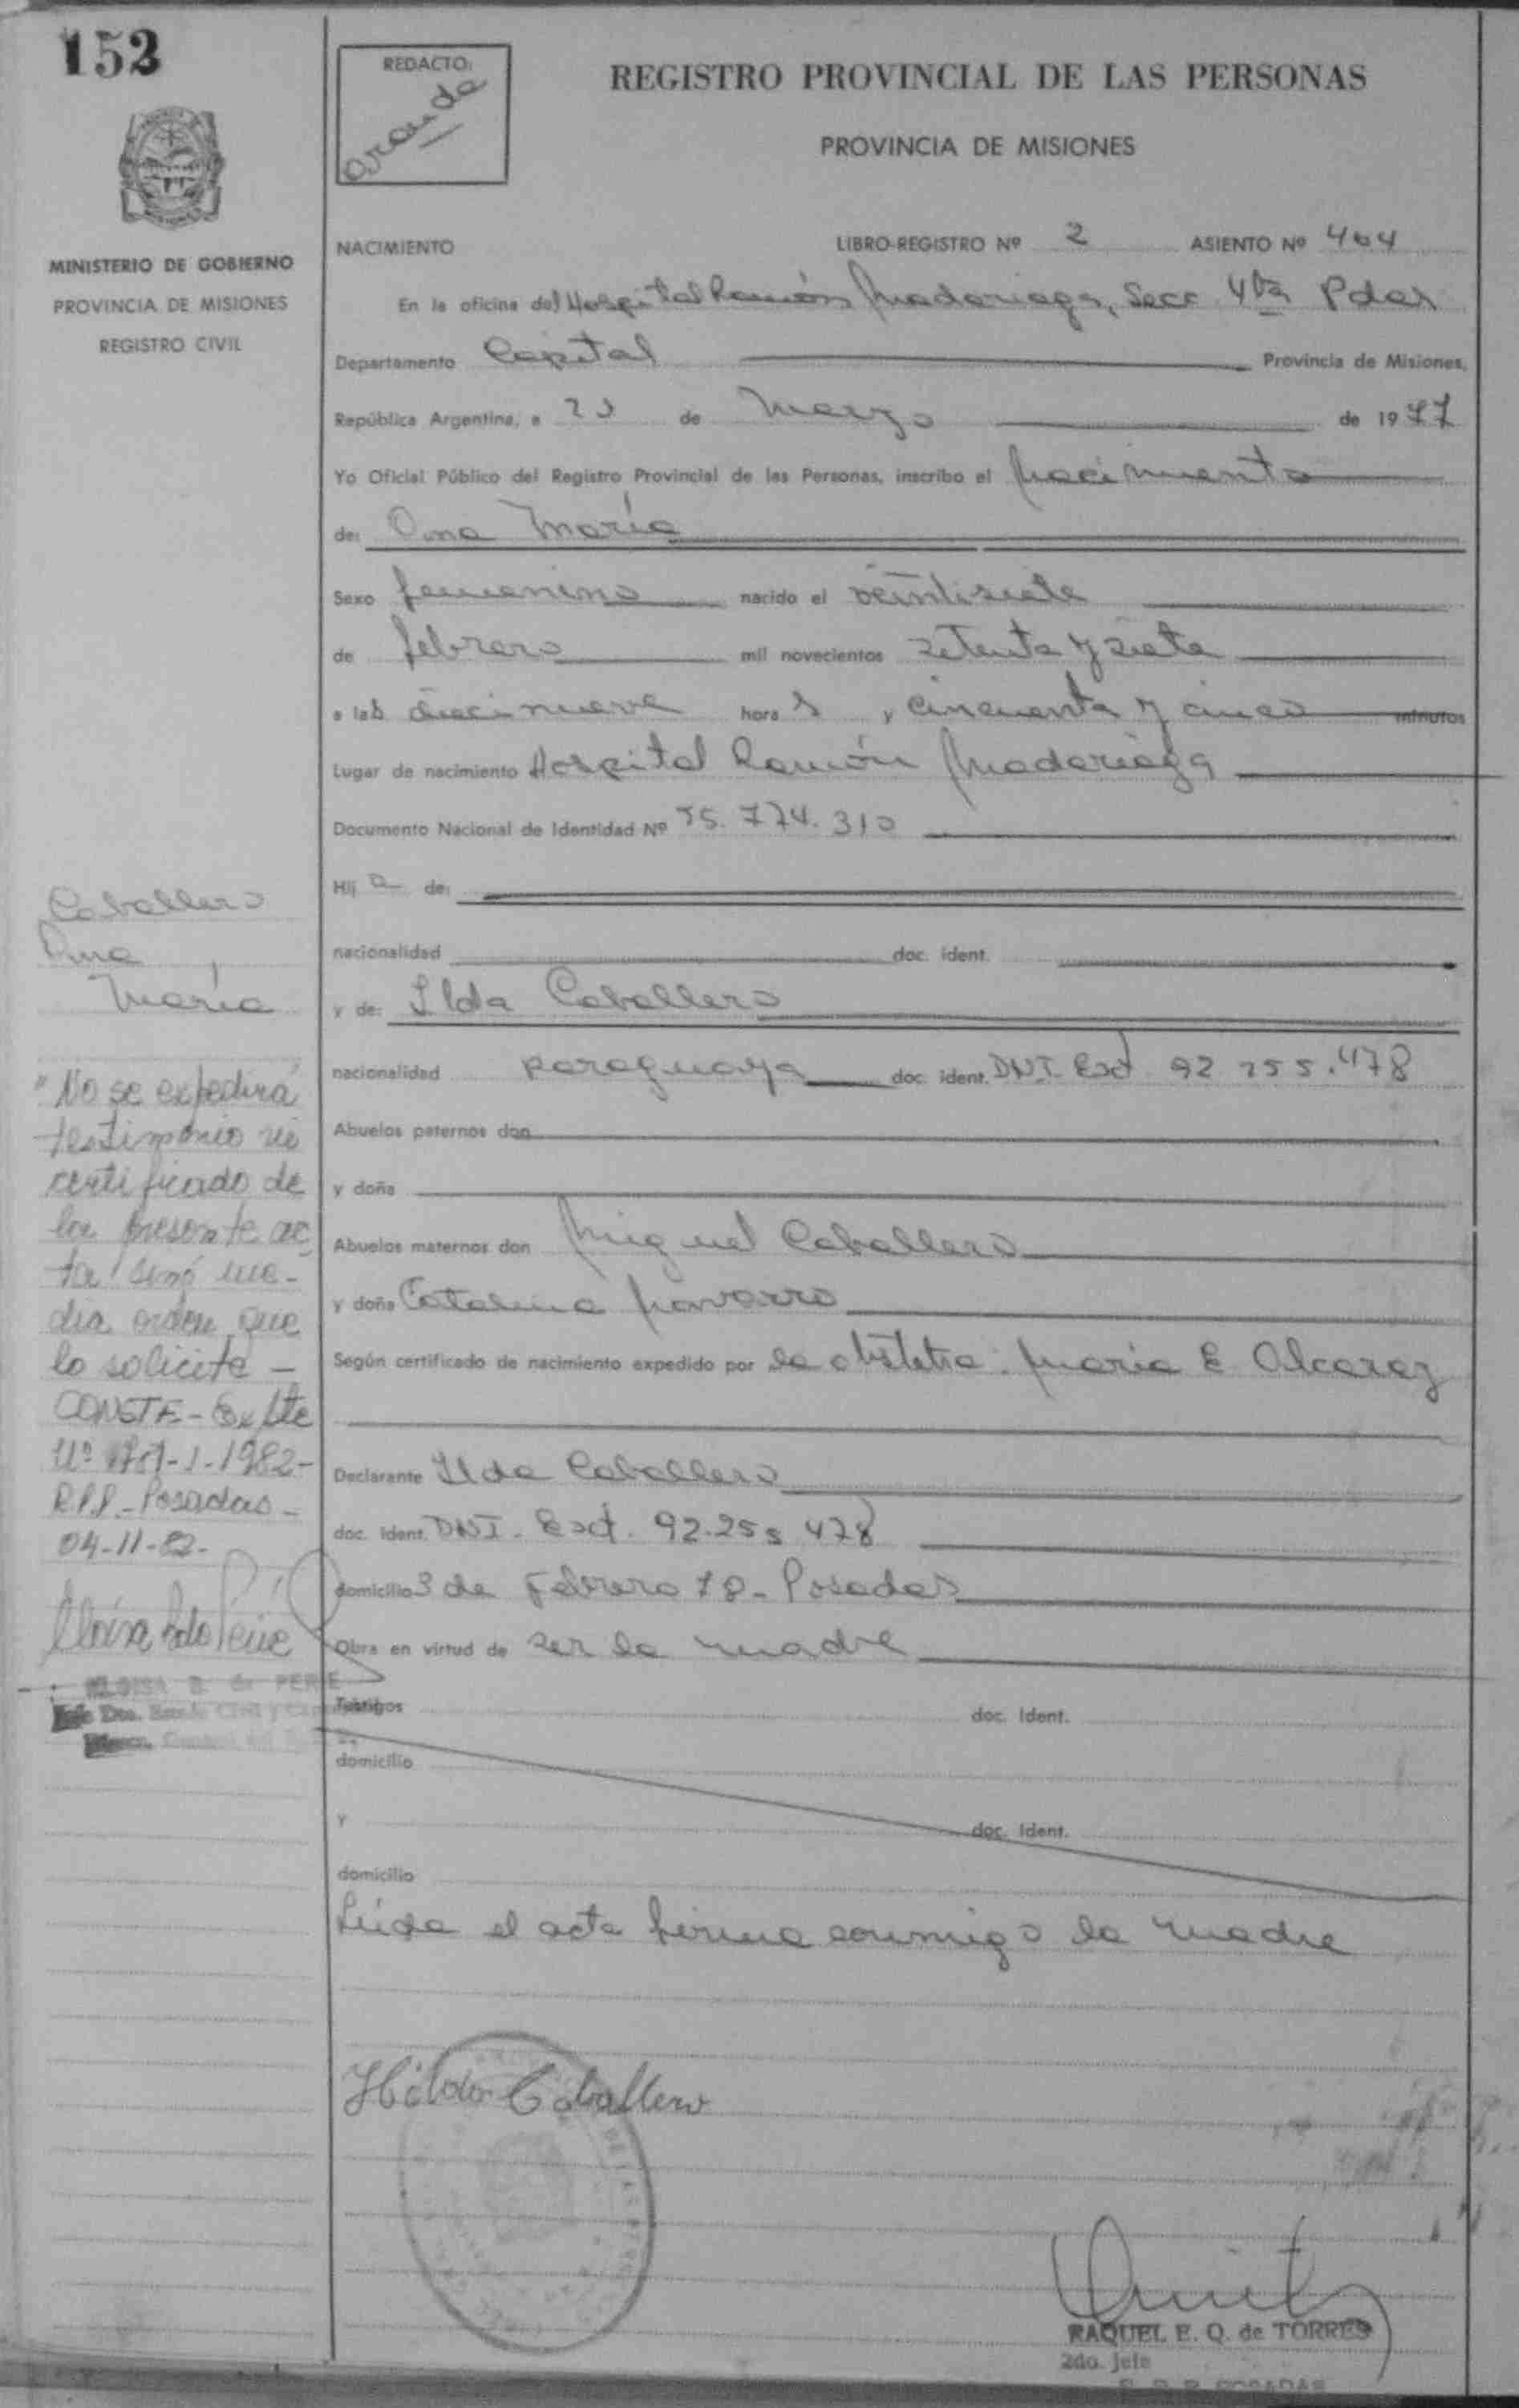 152
REDACTO:
Aranda
REGISTRO PROVINCIAL DE LAS PERSONAS
PROVINCIA DE MISIONES
MINISTERIO DE GOBIERNO
PROVINCIA DE MISIONES
REGISTRO CIVIL
NACIMIENTO LIBRO-REGISTRO Nº 2 ASIENTO Nº 464
En la oficina del Hospital Ramón Madariaga, Secc 4ta Pdas
Departamento Capital Provincia de Misiones,
República Argentina, a de Marzo de 1977
Yo Oficial Público del Registro Provincial de las Personas, inscribo el Nacimiento
de: Ana María
Sexo femenino nacido el veintisiete
de febrero mil novecientos setenta y siete
a las diecinueve horas y cincuenta y cinco minutos
Lugar de nacimiento Hospital Ramón Madariaga
Documento Nacional de Identidad Nº 25.774.310
Hija de:
nacionalidad doc. ident.
y de: Ilda Caballero
nacionalidad paraguaya doc. ident. DNI Ext 92 255.478
Abuelos paternos don
y doña
Abuelos maternos don Miguel Caballero
y doña Catalina Navarro
Según certificado de nacimiento expedido por la obstetra: María E. Alcaraz
Declarante Ilda Caballero
doc. ident. DNI - Ext. 92.255 478
domicilio 3 de Febrero 18 - Posadas
Obra en virtud de ser la madre
Testigos doc. Ident.
domicilio
Y doc. Ident.
domicilio
Leida el acta firma conmigo la madre
Hilda Caballero
RAQUEL E. Q. de TORRES
2do. Jefe
R. P. P. POSADAS
Caballero
Ana
María
"No se expedirá
testimonio ni
certificado de
la presente ac
ta sinó me-
dia orden que
lo solicite -
CONSTE - Expte
Nº 1781-J-1982-
R.P.P - Posadas -
04-11-82-
ELOISA B. de PERIE
Jefe Dto. Estado Civil y